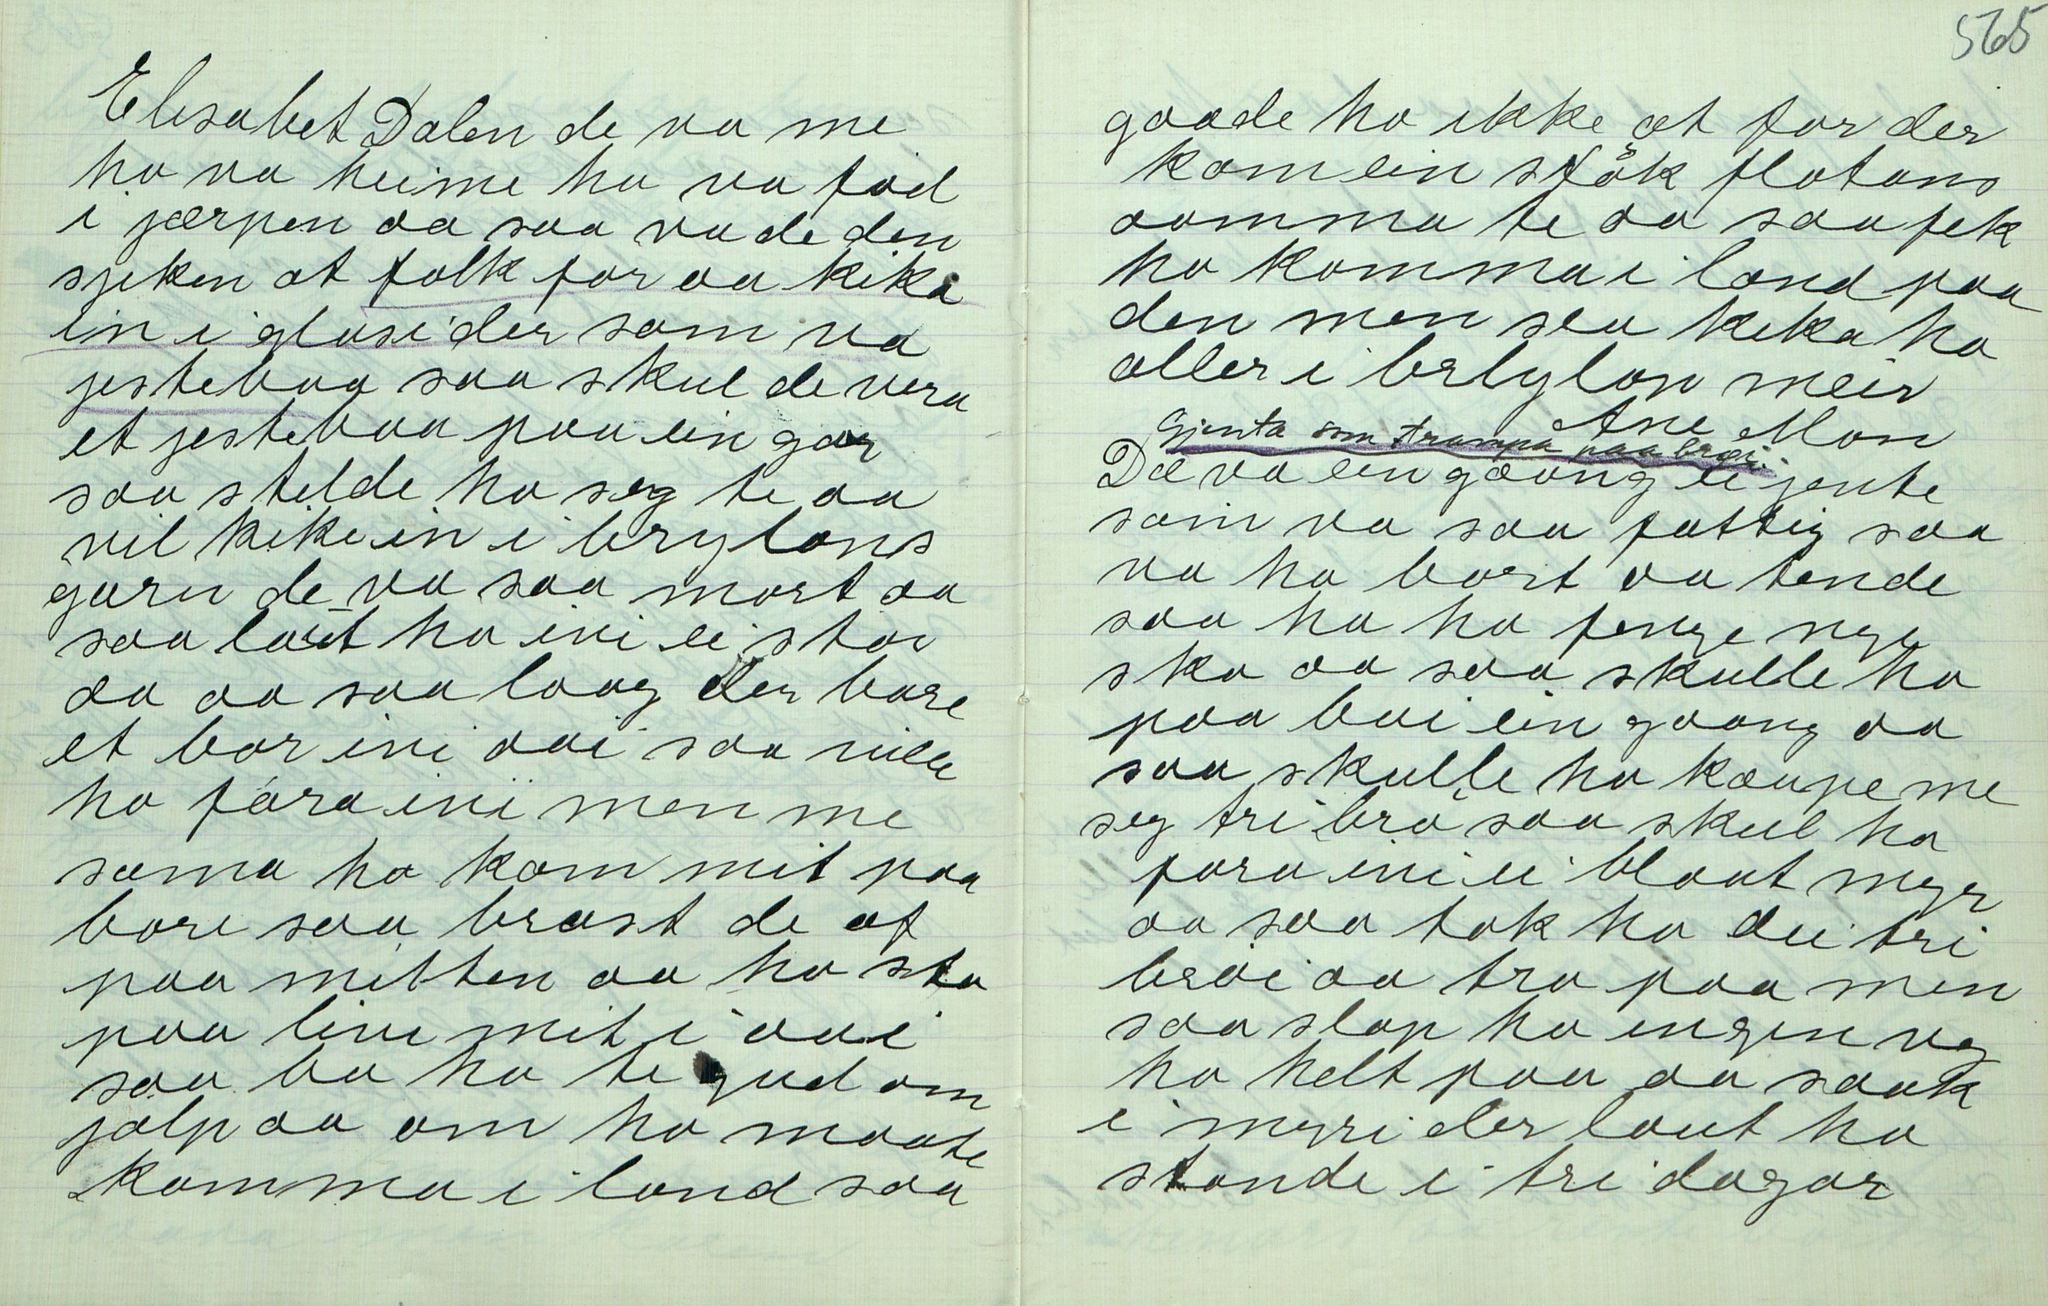 565
Elisabet Dalen de va me
ho va heime ho va fød
i jærpen aa saa va de den
sjeken at folk for aa kika
in i glasi der som va
jestebaa saa skul de vera
et jestebaa paa ein gar
saa stelde ho seg te aa
vil kike in i brylons
garn de va saa mort aa
saa laut ho ivi ei stor
aa aa saa laag der bare
et bor ivi aai saa ville
ho fara ivi men me
sama ho kom mit paa
bore saa brast de af
paa mitten aa ho sto
paa live mit i aai
saa ba ho te gud om
jølp aa om ho maate
komma i land saa
gaade ho ikke æt før der
kom ein støk flotans
aamma te aa saa fek
ho komma i land paa
den men sea kika ho
aller i brlylop meir
Ane Mon
Gjenta som trampa paa brøi.
Dæ va ein gaang ei jente
som va saa fattig saa
va ho bort aa tende
saa ha ho fenge nye
sko aa saa skulle ho
paa bui ein gaang aa
saa skulle ho kaupe me
seg tri brø saa skul ho
fara ivi ei blaut myr
aa saa tok ho dei tri
brøi aa tra paa men
saa slap ho ingen veg
ho helt paa aa saakk
i myri der laut ho
stonde i tri dagar